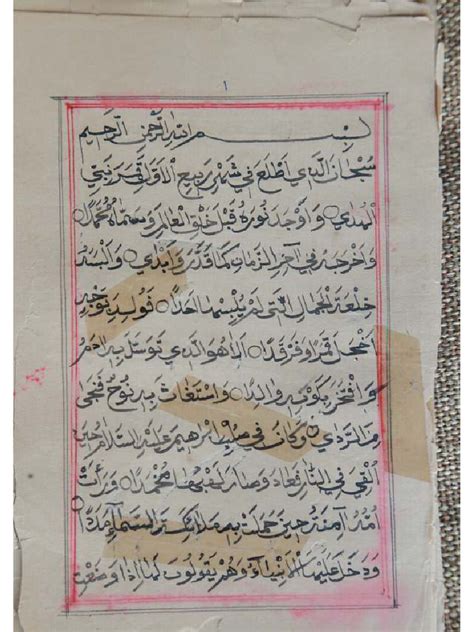 ١
بسم الله الرحمن الرحيم
سبحان الذي اطلع في شهر ربيع الاول قمر نبي
الهدي وأوجد نوره قبل خلق العالم وسماه محمدا
واخرجه في آخر الزمان كما قدر وابدي والبسه
خلعة الجمال التي لم يلبسها احدا فولد بوجه
اخجل قمرا وفرقدا ألا هو الذي توسل به آدم
وافتخر بكونه والدا واستغاث به نوح فنجى
من الردي وكان في صلب ابرهيم عليه السلام حين
القي في النار فعاد وصار لهبها مخمدا ورأت
امه آمنة حين حملت به ملائكة السماء مددا
ودخل عليها الانبياء وهم يقولون لها اذا وضعت